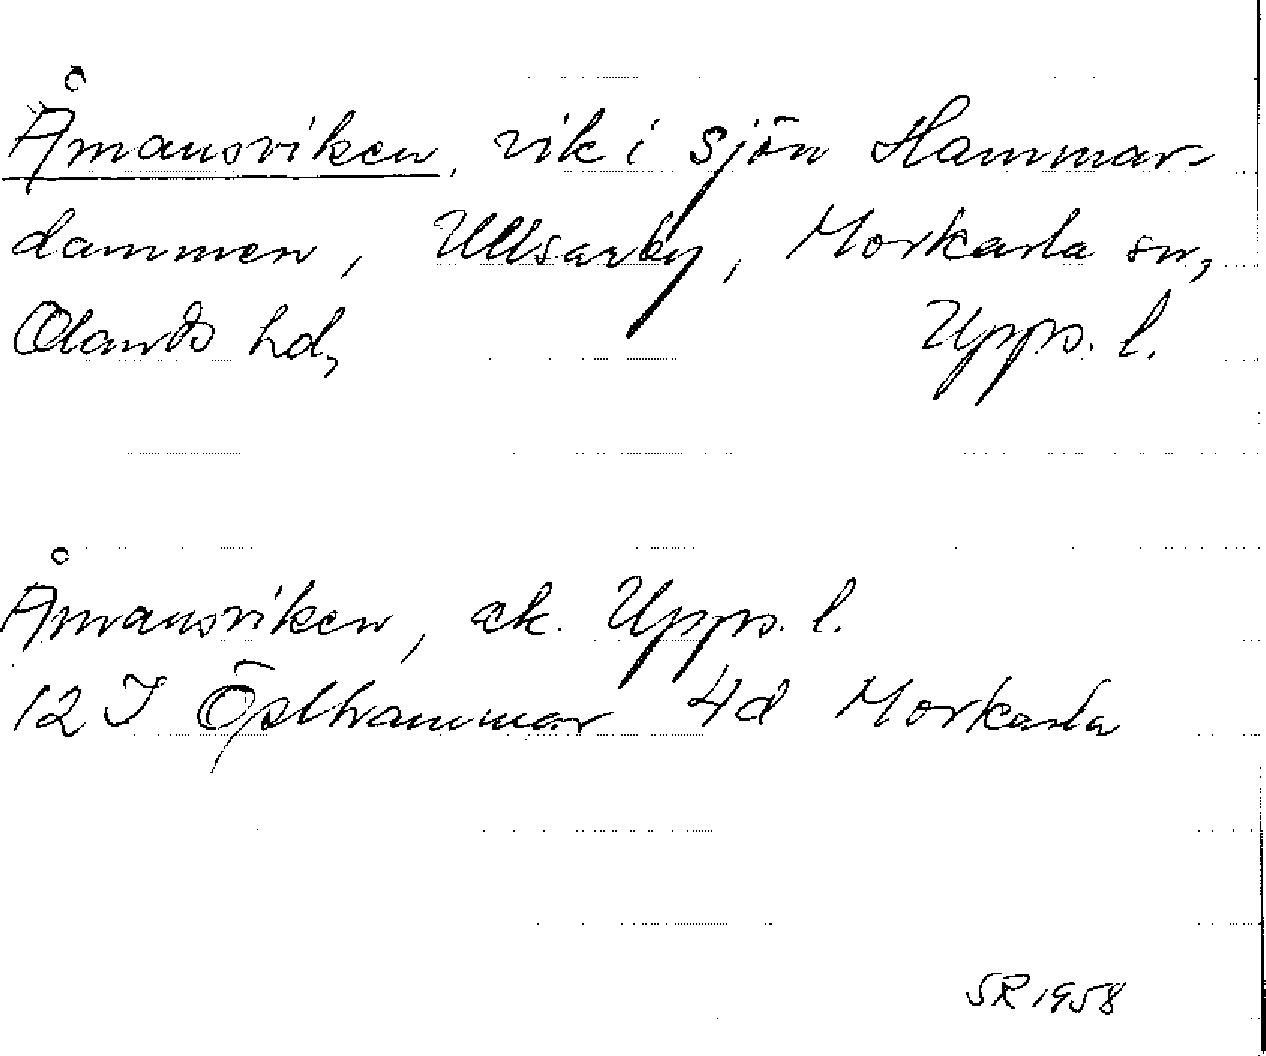 Åmansviken, vik i sjön Hammar-
dammen, Ullsarby, Morkarla sn,
Olands hd, Upps. l.
Åmansviken, ek. Upps. l.
12 I Östhammar 4d Morkarla
SR 1958